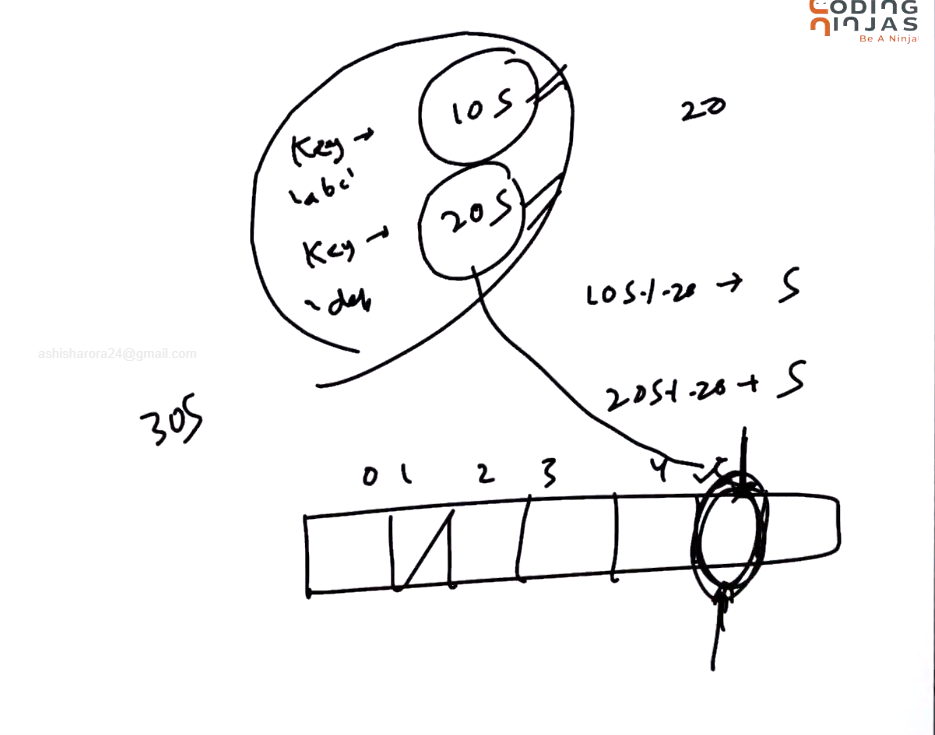 CODING
NINJAS
Be A Ninja
105
20
Key →
'abc'
205
Key →
def
105 % 20 → 5
205 % 20 → 5
ashisharora24@gmail.com
305
0 1 2 3 4 5